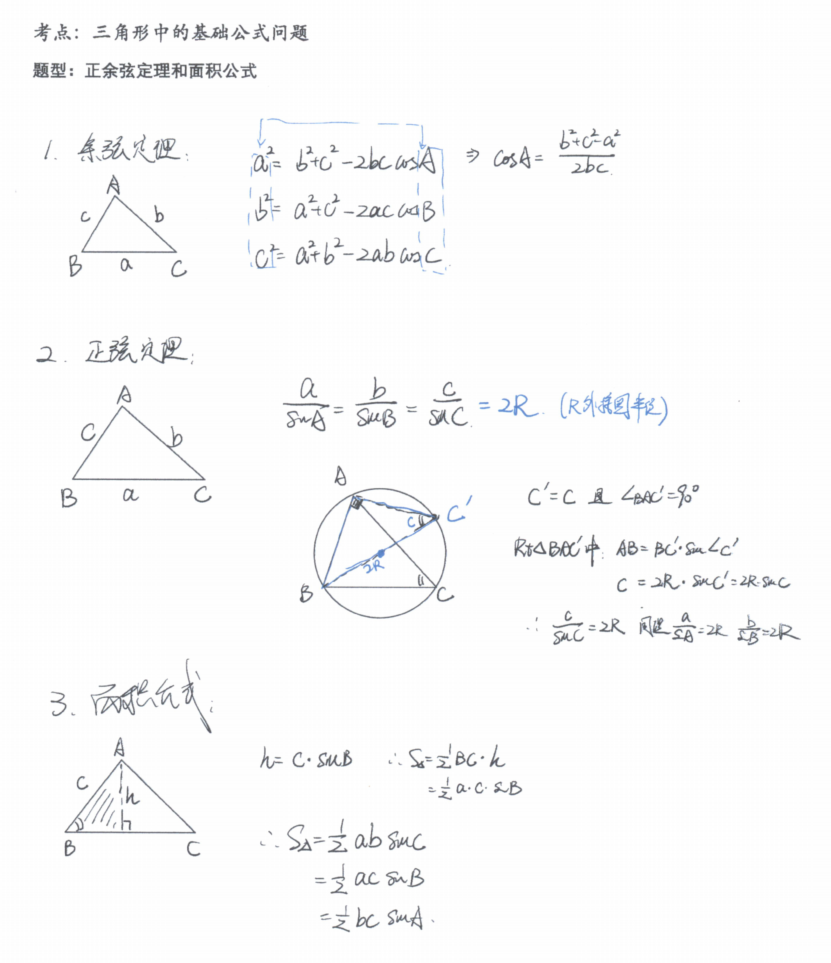 考点：三角形中的基础公式问题
题型：正余弦定理和面积公式
1. 余弦定理：
a² = b²+c²-2bc cosA ⇒ cosA = (b²+c²-a²)/(2bc)
b² = a²+c²-2ac cosB
c² = a²+b²-2ab cosC
A
c b
B a C
2. 正弦定理：
a/sinA = b/sinB = c/sinC = 2R. (R外接圆半径)
A
c b
B a C
A
C'
C
2R
B C
C'=C 且 ∠BAC'=90°
Rt△BAC'中. AB=BC'·sin∠C'
C = 2R·sinC'=2R·sinC
∴ c/sinC=2R 同理 a/sA=2R b/sB=2R
3. 面积公式：
A
c h
B C
h = C·sinB ∴ S△=½BC·h
=½a·c·sinB
∴ S△=½ab sinC
=½ac sinB
=½bc sinA.